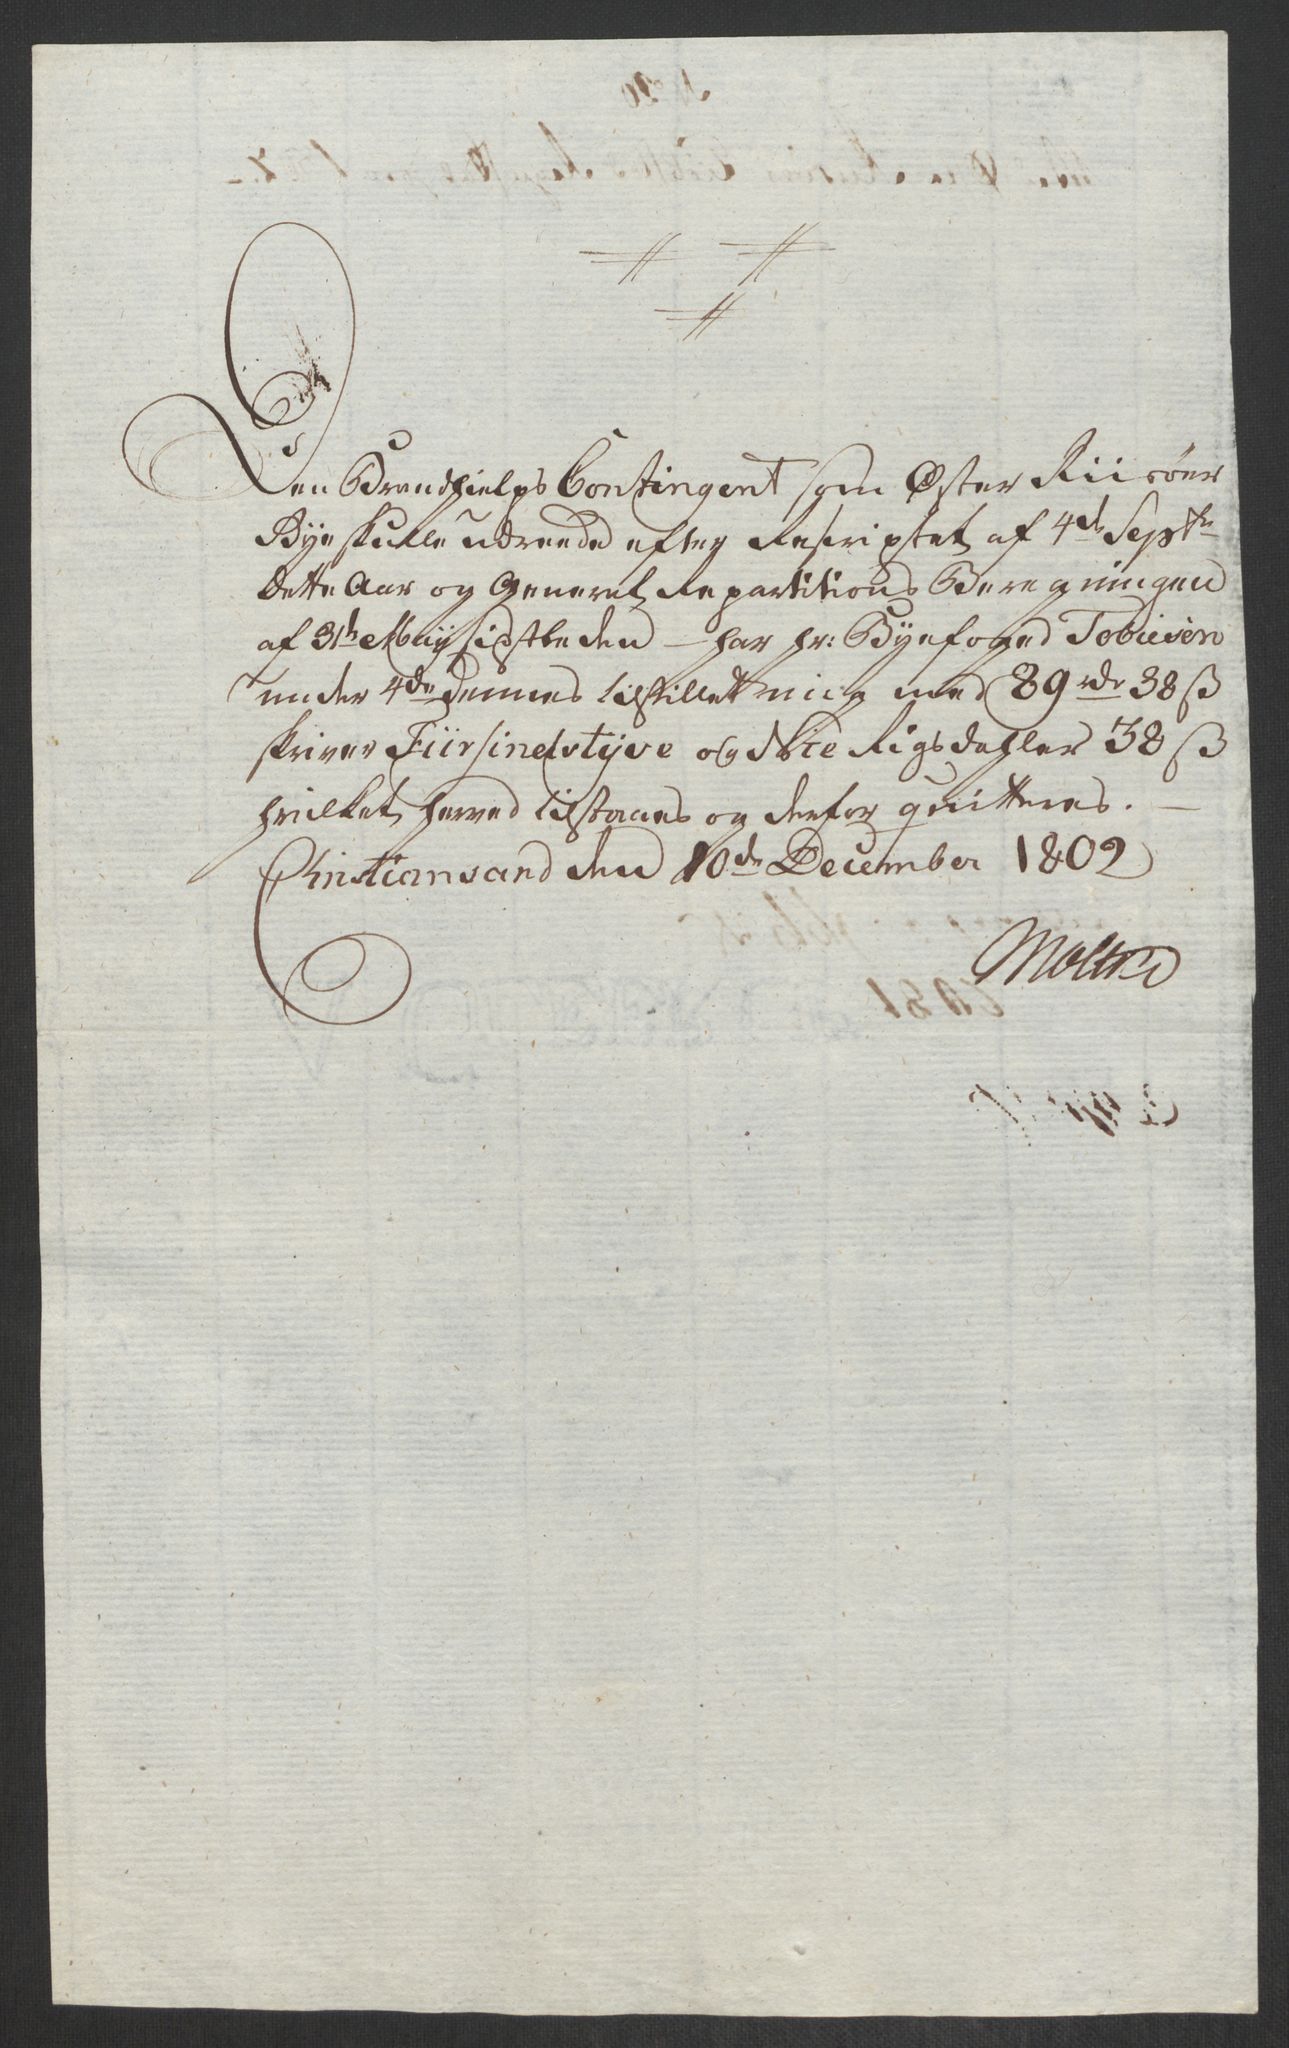 Den Brandhielps Contingent som Øster Riisöer
Bye skulle udreede efter Rescriptet af 4de Septbr
dette Aar og General Repartitions Beregningen
af 31th Maij sidstleden – har hr: Byefoged Tobiesen
under 4de dennes tilstillet mig med 89 rdr 38 ß
skriver Fiirsindstyve og Nie Rigsdahler 38 ß
hvilket herved tilstaaes og derfor quitteres. –
Christiansand den 10de December 1802
Moltke